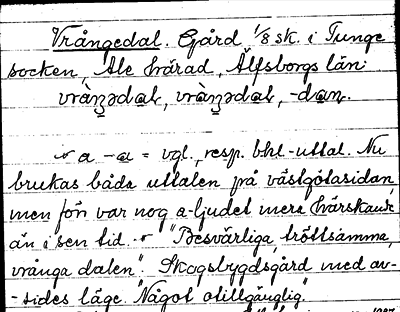 Vrångedal. Gård 1/8 sk. i Tunge
socken, Ale härad, Älfsborgs län:
vràŋədal, vràŋədal, -dan.
a - a = vgl., resp. bhl-uttal. Nu
brukas båda uttalen på västgötasidan,
men förr var nog a-ljudet mera härskande
än i sen tid. "Besvärliga, tröttsamma,
vrånga dalen". Skogsbygdsgård med av-
-sides läge. "Något otillgänglig".